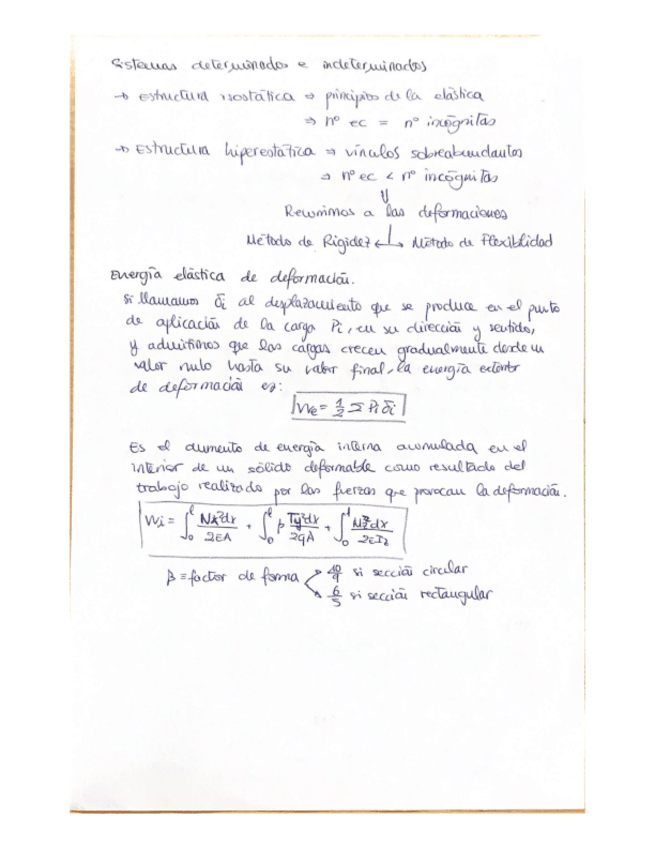 Sistemas determinados e indeterminados
→ Estructura isostática ⇒ principios de la elástica
⇒ nº ec = nº incógnitas
→ Estructura hiperestática ⇒ vínculos sobreabundantes
⇒ nº ec < nº incógnitas
⇓
Recurrimos a las deformaciones
Método de Rigidez ↲↳ Método de Flexibilidad
Energía elástica de deformación.
Si llamamos δi al desplazamiento que se produce en el punto
de aplicación de la carga Pi, en su dirección y sentido,
y admitimos que las cargas crecen gradualmente desde un
valor nulo hasta su valor final, la energía exterior
de deformación es:
We = 1/2 Σ Pi δi
Es el aumento de energía interna acumulada en el
interior de un sólido deformable como resultado del
trabajo realizado por las fuerzas que provocan la deformación.
Wi = ∫₀ˡ Nx²dx/2EA + ∫₀ˡ β Ty²dx/2GA + ∫₀ˡ Mz²dx/2EIz
β ≡ factor de forma 10/9 si sección circular
6/5 si sección rectangular